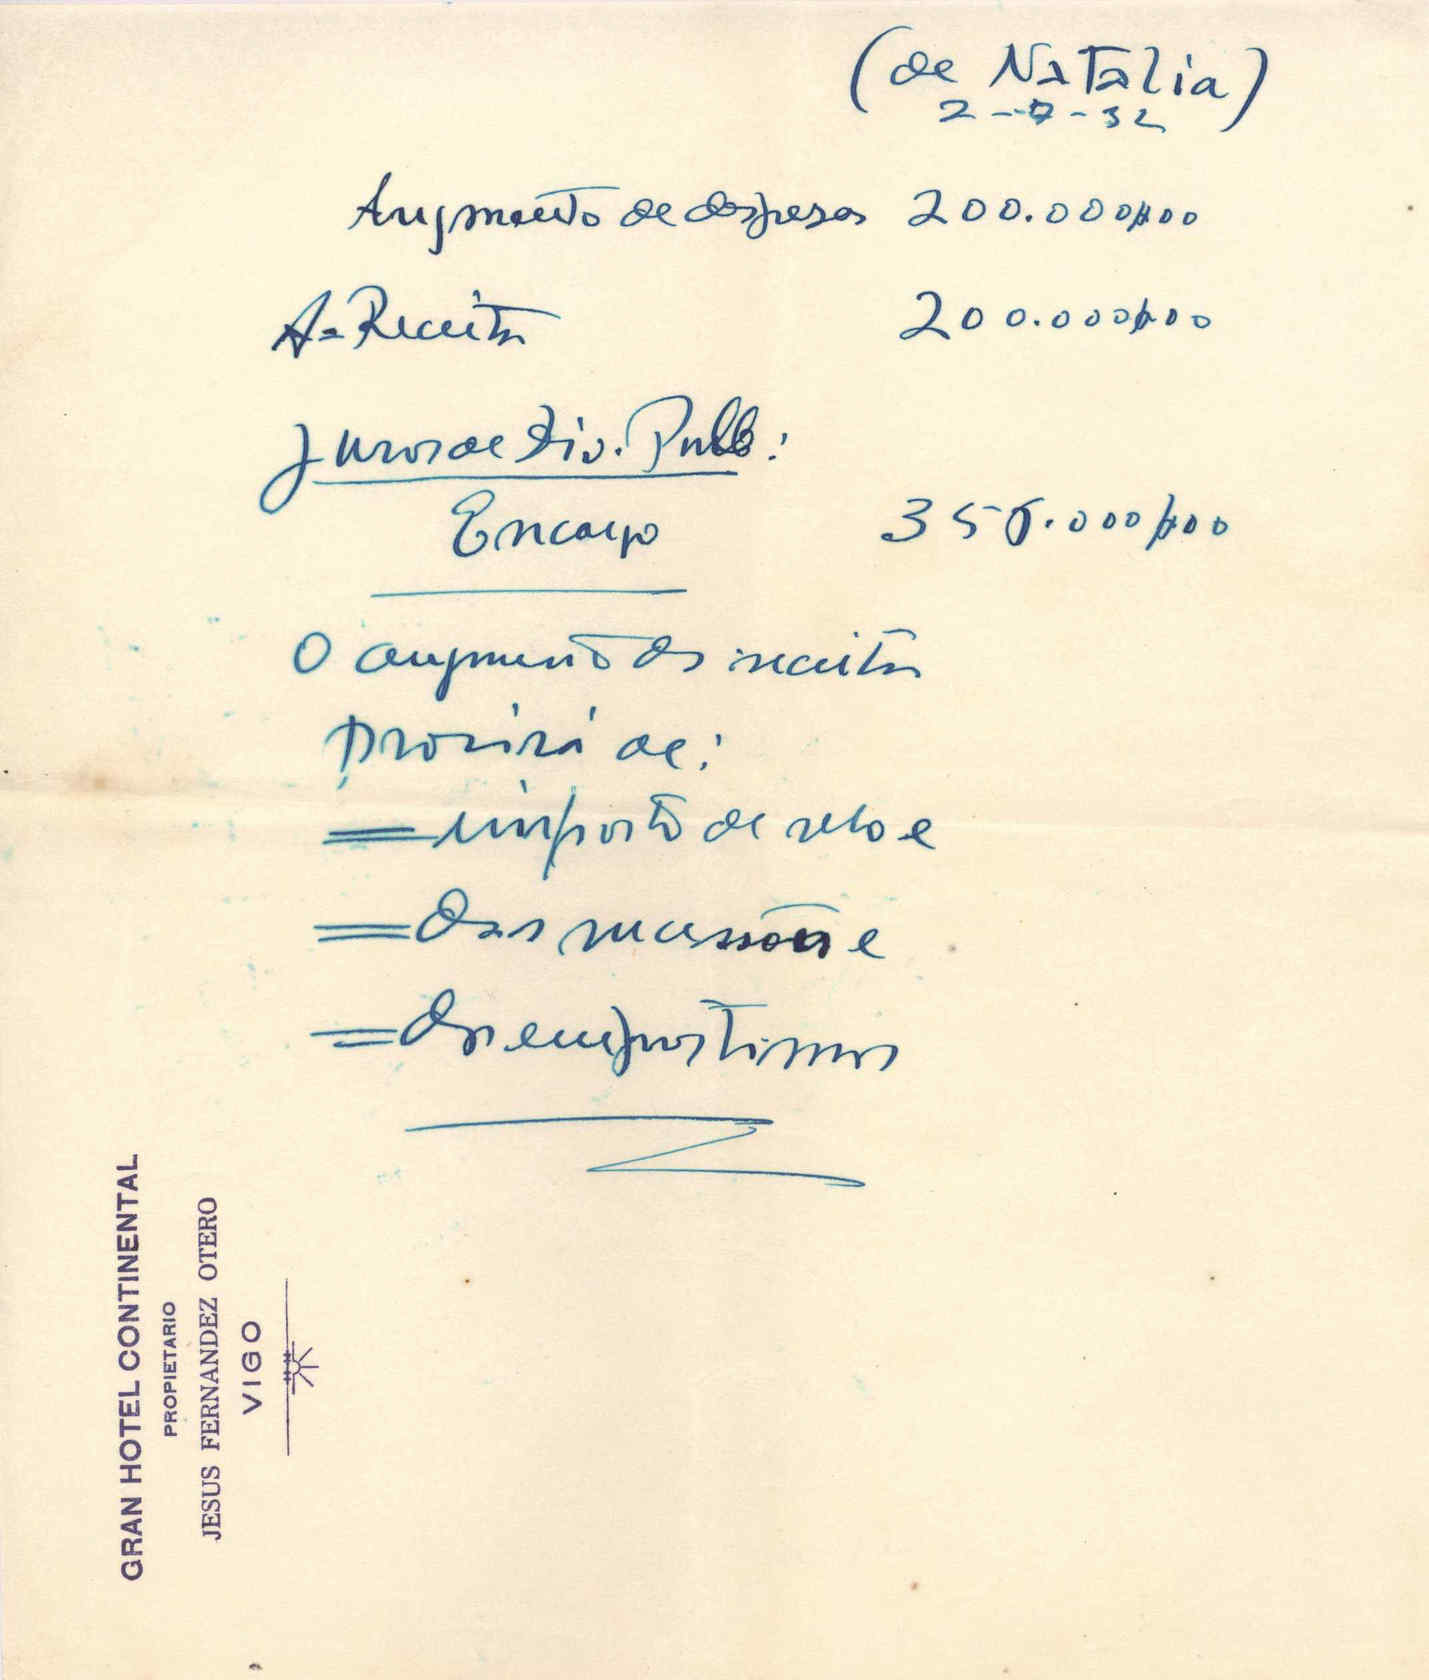 (de Natalia)
2-7-32
Augmento de despesas 200.000$00
Da Receita 200.000$00
Juros de Div. Publ:
Encargo 355.000$00
O augmento da receita
provirá de:
= imposto de selo e
= das sucessões e
= dos emprestimos
GRAN HOTEL CONTINENTAL
PROPIETARIO
JESUS FERNANDEZ OTERO
VIGO